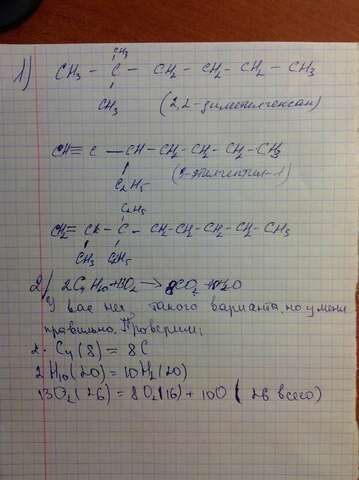 1)
CH3
CH3 — C — CH2 — CH2 — CH2 — CH3
CH3
(2,2-диметилгексан)
CH≡C — CH — CH2 — CH2 — CH2 — CH3
C2H5
(3-этилгептин-1)
C2H5
C — CH2 — CH2 — CH2 — CH2 — CH3
CH3 C2H5
2) 2C4H10 + 13O2 → 8CO2 + 10H2O
У вас нет такого варианта, но у меня
правильно. Проверим:
2·C4 (8) = 8C
2H10 (20) = 10H2 (20)
13O2 (26) = 8O2 (16) + 10O (26 всего)